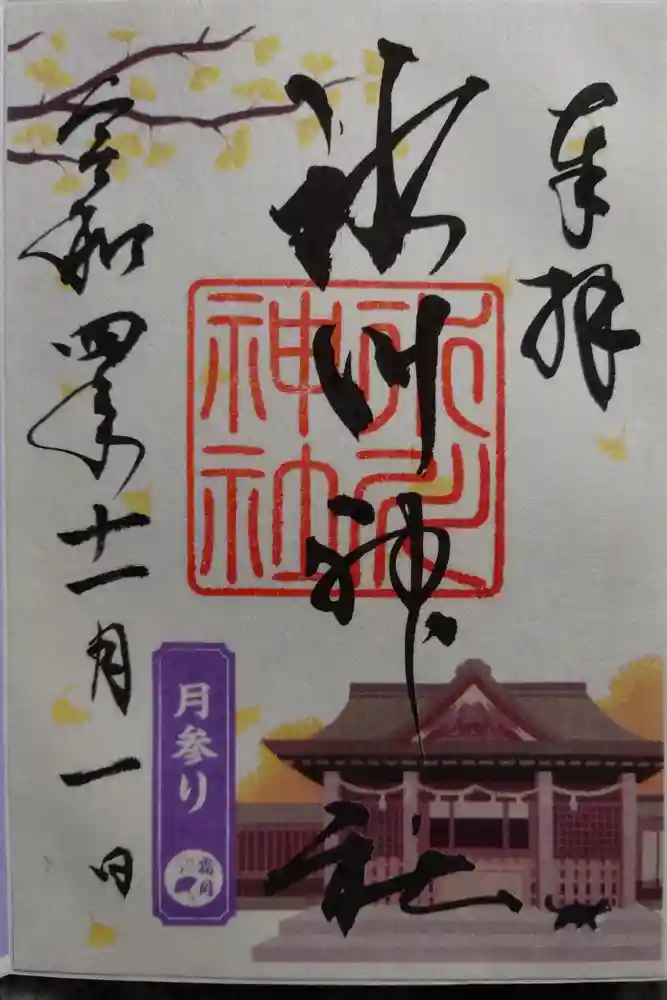 奉拝
氷川神社
氷川神社
月参り
霜月
令和四年十一月一日